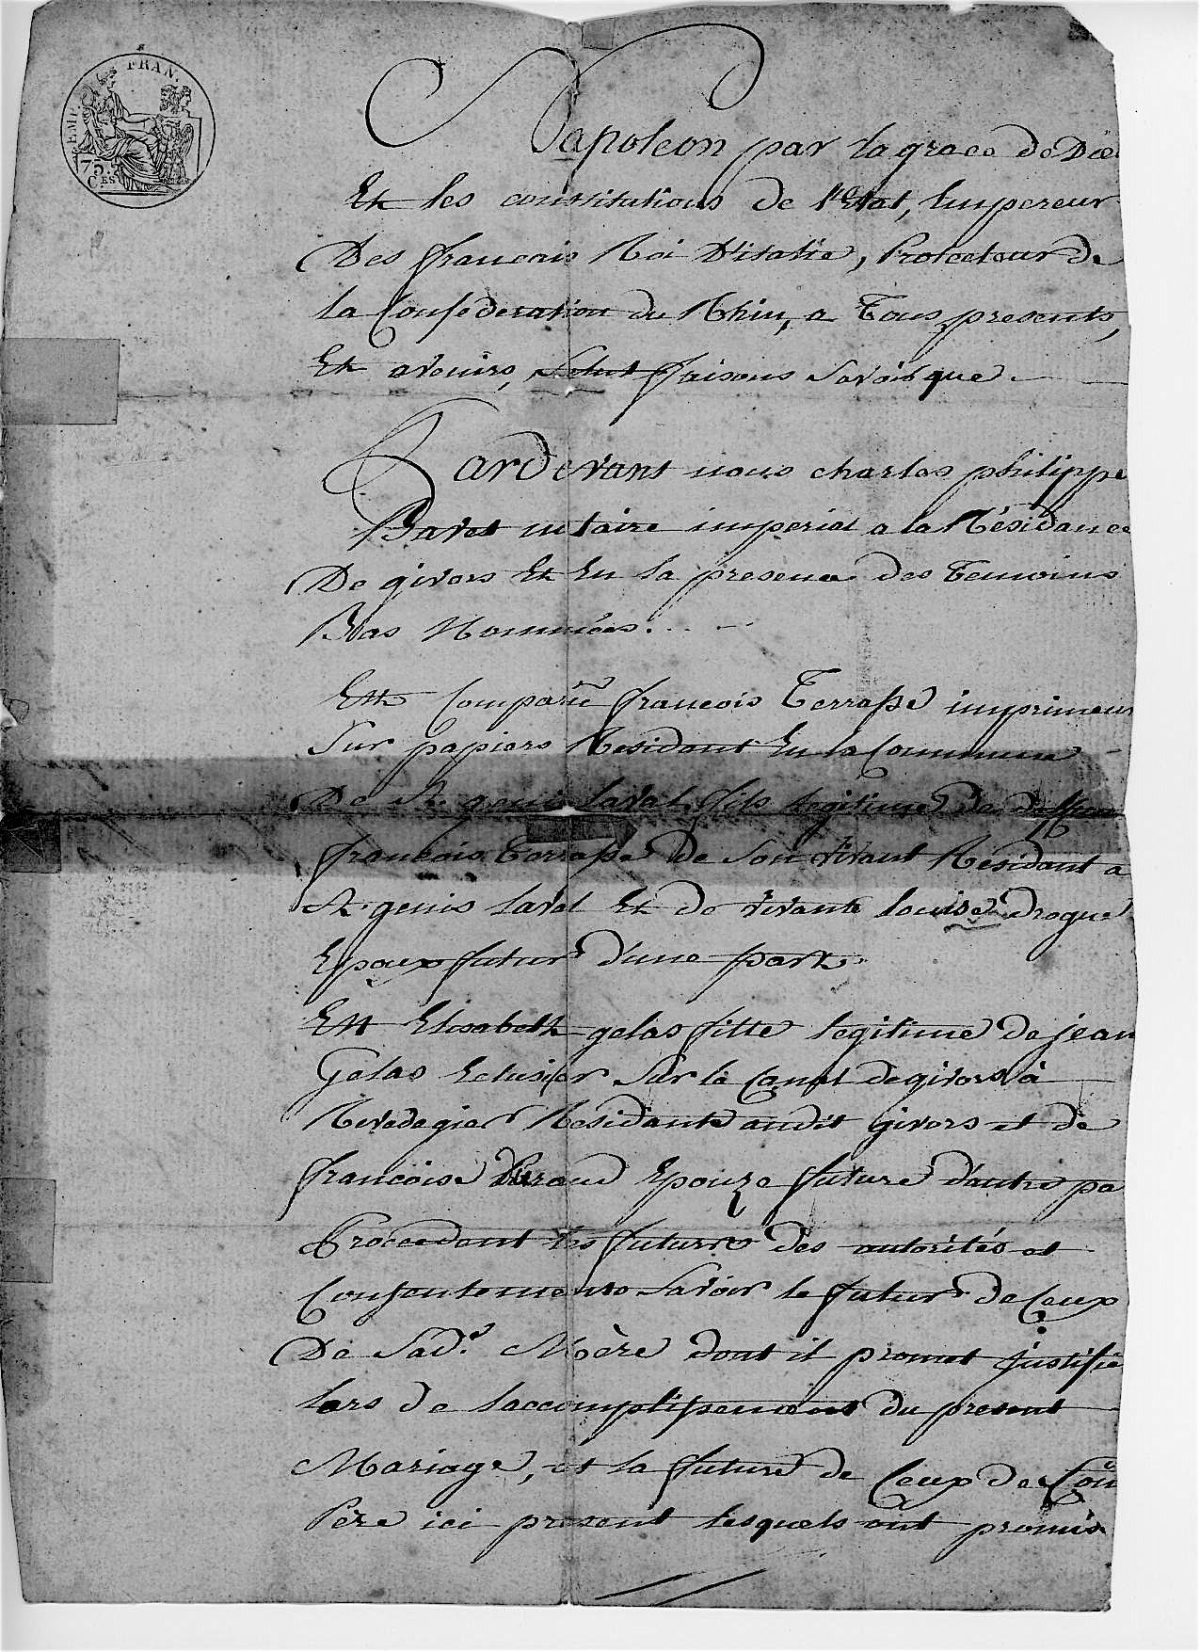 EMP. FRAN.
75.
CES
Napoleon par la grace de Die
Et les constitutions de l'Etat, Empereur
Des francais Roi D'italie, Protecteur de
la Confederation du Rhin, a Tous presents,
Et avenirs, Salut faisons Savoir que
Pardevant nous charles philippe
Bavet notaire imperial a la Résidance
De givors Et En la presence des temoins
Bas Nommées...
Est Comparu francois Terrasse imprimeur
Sur papiers Residant En la Commune
De St. genis laval fils legitime de deffun
francois Terrasse de Son vivant Residant a
St. genis laval Et de vivante louise drogue
Epoux futur d'une part
Et Elisabeth gelas fille legitime de jean
Gelas Eclusier Sur le Canal de givors à
Rivedegier Residante audit givors et de
francoise Epouze future d'autre pa
Procedant les futurs des autorités et
Consentements Savoir le futur de Ceux
De Sad.e Mère dont il promet justifie
lors de laccomplissement du present
Mariage, et la future de Ceux de Son
Père ici present lesquels ont promis